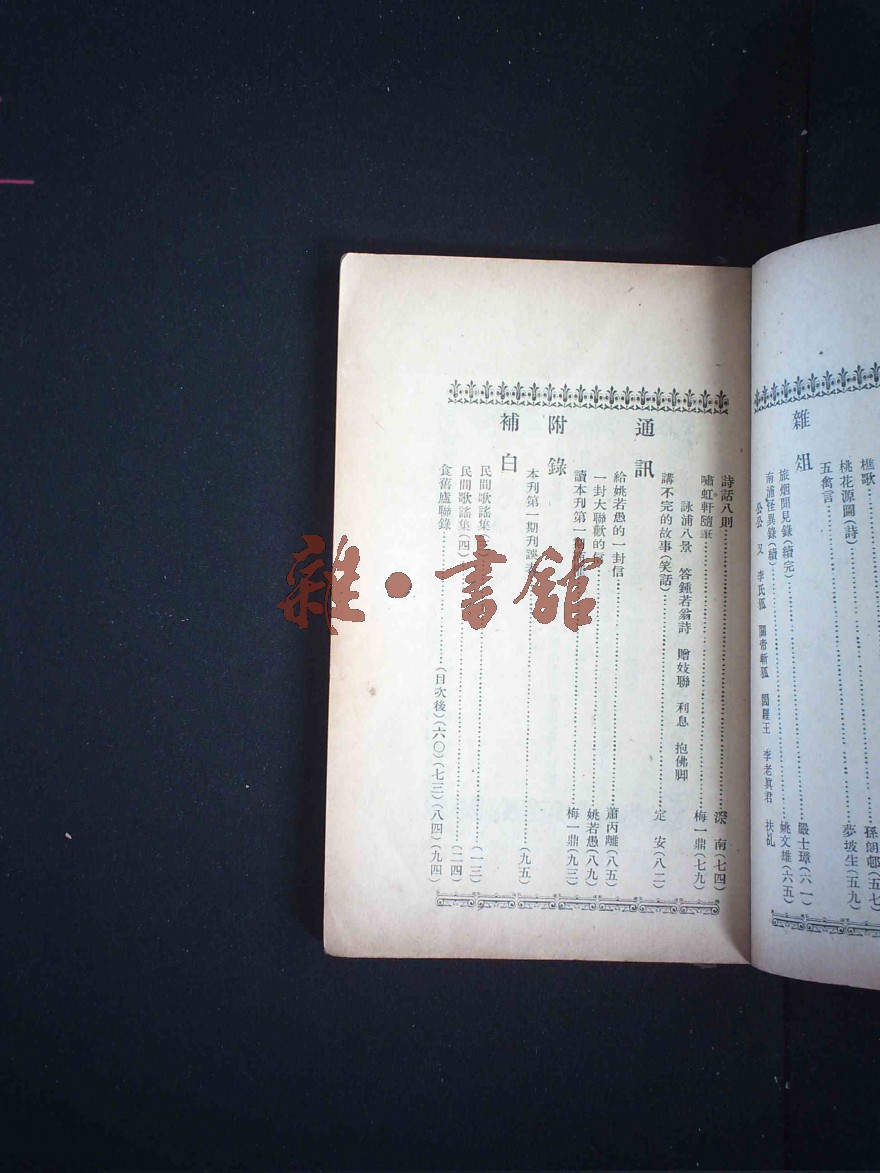 樵歌 孫朗邨(五七)
桃花源圖(詩) 夢坡生(五九)
五禽言
雜俎
旅烟聞見錄(續完) 嚴士璋(六一)
南浦怪異錄(續) 姚文雄(六五)
公公 又 李氏狐 關帝斬狐 閻羅王 李老眞君 扶乩
詩話八則 深南(七四)
嘯虹軒隨筆 梅一鼎(七九)
詠浦八景 答鍾若翁詩 贈妓聯 利息 抱佛脚
講不完的故事(笑話) 定安(八二)
通訊
給姚若愚的一封信 蕭丙雝(八五)
一封大聯歡的 姚若愚(八九)
讀本刊第一 梅一鼎(九三)
附錄
本刊第一期刊誤 (九五)
補白
民間歌謠集 (一三)
民間歌謠集(四) (二四)
食舊廬聯錄 (目次後)(六〇)(七三)(八四)(九四)
雜·書館